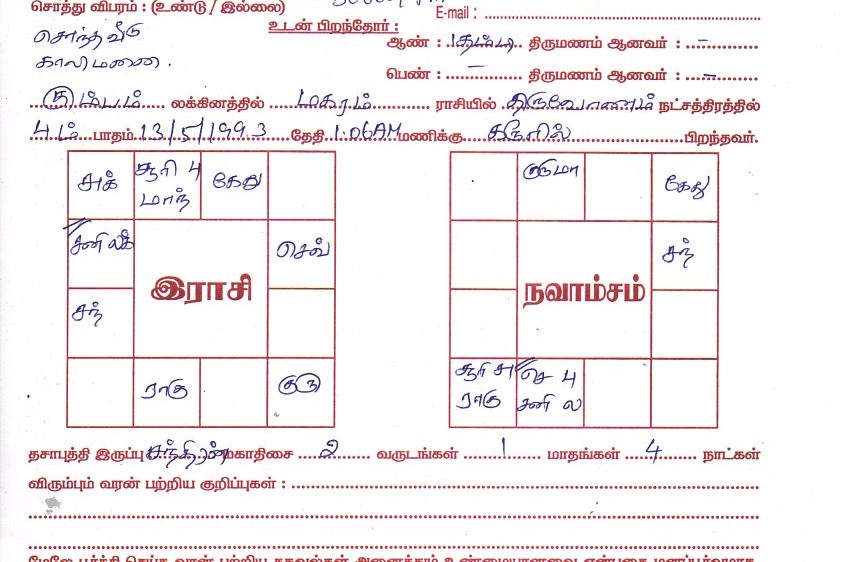 சொத்து விபரம் : (உண்டு / இல்லை)
E-mail :
சொந்த வீடு
உடன் பிறந்தோர் :
ஆண் : திருமணம் ஆனவர் : –
காலிமனை .
பெண் : – திருமணம் ஆனவர் : –
கும்பம் லக்கினத்தில் மகரம் ராசியில் திருவோணம் நட்சத்திரத்தில்
4ம் பாதம் 13/5/1993 தேதி 1.06AM மணிக்கு பிறந்தவர்.
சுக் சூரி 4 கேது
மாந்
சனி லக் செவ்
இராசி
சந்
ராகு குரு
குரு மா கேது
சந்
நவாம்சம்
சூரி சு செ 4
ராகு சனி ல
தசாபுத்தி இருப்பு சந்திரன் மகாதிசை 2 வருடங்கள் 1 மாதங்கள் 4 நாட்கள்
விரும்பும் வரன் பற்றிய குறிப்புகள் :